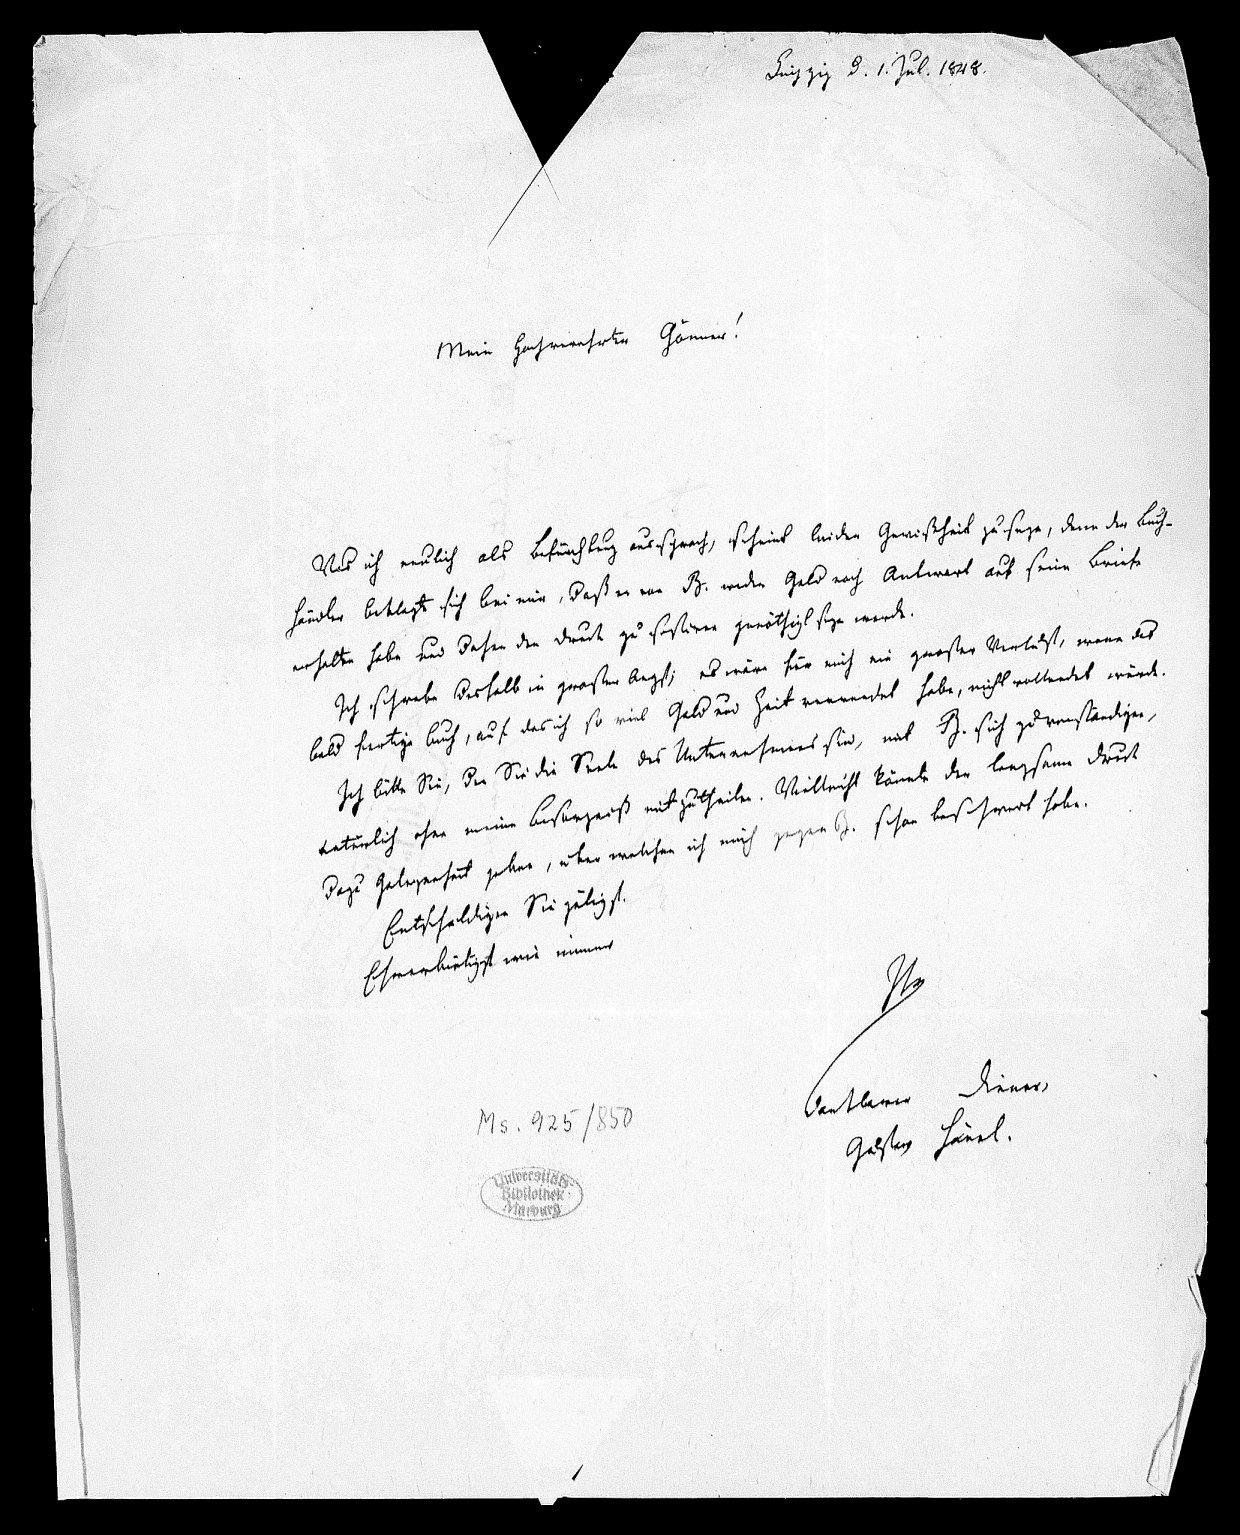 Leipzig d. 1. Jul. 1848.
Mein hochverehrter Gönner!
Was ich neulich als Befürchtung aussprach, scheint leider Gewißheit zu seyn, denn der Buch-
händler beklagt sich bei mir, daß er von B. weder Geld noch Antwort auf seine Briefe
erhalten habe und daher den Druck zu sistiren genöthigt seyn werde.
Ich schwebe deshalb in großer Angst; es wäre für mich ein großer Verlust, wenn das
bald fertige Buch, auf das ich so viel Geld und Zeit verwendet habe, nicht vollendet würde.
Ich bitte Sie, da Sie die Seele des Unternehmens sind, mit B. sich zu verständigen,
natürlich ohne meine Besorgniß mitzutheilen. Vielleicht könnte der langsame Druck
dazu Gelegenheit geben, über welchen ich mich gegen B. schon beschwert habe.
Entschuldigen Sie gütigst.
Ehrerbietigst wie immer
Ihr
dankbarer Diener,
Gustav Hänel.
Ms. 925/850
Universitäts-
Bibliothek
Marburg